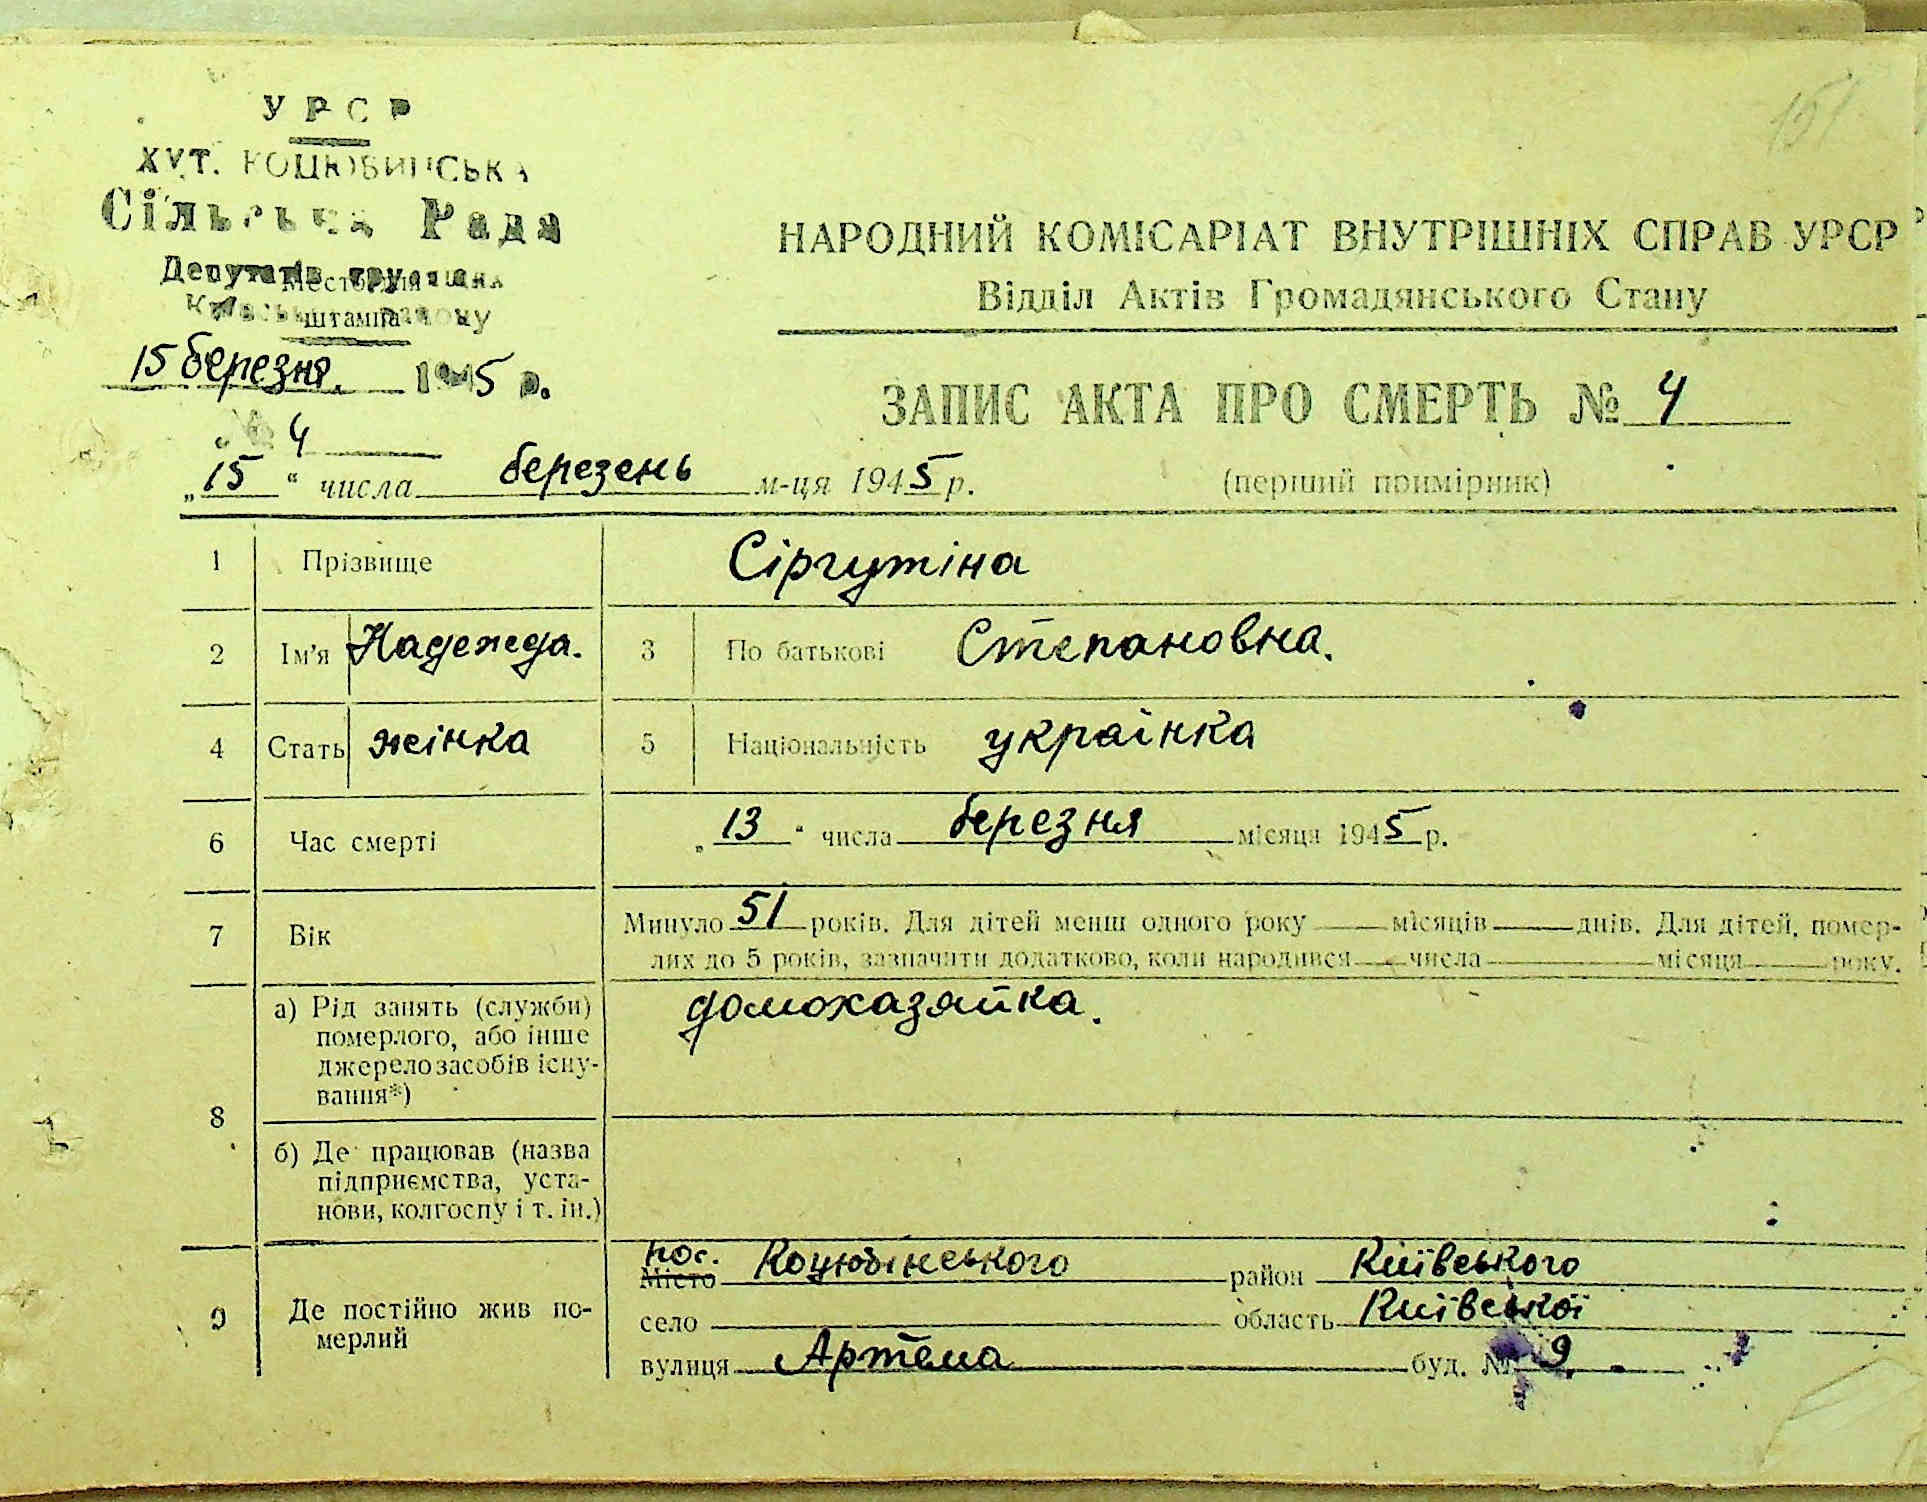 151
УРСР
ХУТ. КОЦЮБИНСЬКА
Сільська Рада
Депутатів трудящих
Место для
штампа
15 березня. 1945 р.
№ 4
НАРОДНИЙ КОМІСАРІАТ ВНУТРІШНІХ СПРАВ УРСР
Відділ Актів Громадянського Стану
ЗАПИС АКТА ПРО СМЕРТЬ № 4
(перший примірник)
„15“ числа березень м-ця 1945 р.
1 Прізвище Сіргутіна
2 Ім'я Надежда. 3 По батькові Степановна.
4 Стать жінка 5 Національність українка
6 Час смерті „13“ числа березня місяця 1945 р.
7 Вік Минуло 51 років. Для дітей менш одного року місяців днів. Для дітей, помер-
лих до 5 років, зазначити додатково, коли народився числа місяця року.
8 а) Рід занять (служби) домохазяйка.
померлого, або інше
джерело засобів існу-
вання*)
б) Де працював (назва
підприємства, уста-
нови, колгоспу і т. ін.)
9 Де постійно жив по-
мерлий
пос.
Місто Коцюбінського район Київського
село область Київської
вулиця Артёма буд. № 9